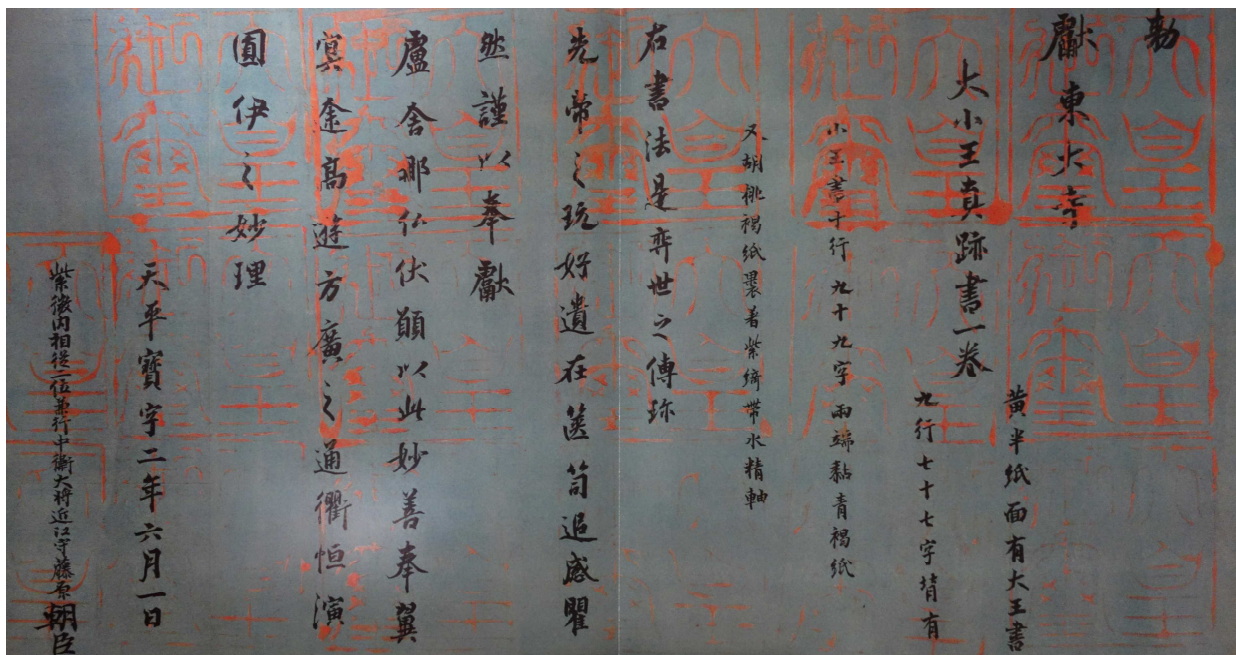 勅
獻東大寺
大小王真跡書一卷
黄半紙面有大王書
九行七十七字背有
小王書十行九十九字兩端黏青褐紙
又胡桃褐紙裏著紫綺帶水精軸
右書法是弈世之傳珎
先帝之玩好遺在篋笥追感瞿
然謹以奉獻
盧舍那仏伏願以此妙善奉翼
冥途高遊方廣之通衢恒演
圓伊之妙理
天平寶字二年六月一日
紫微内相從二位兼行中衛大将近江守藤原朝臣